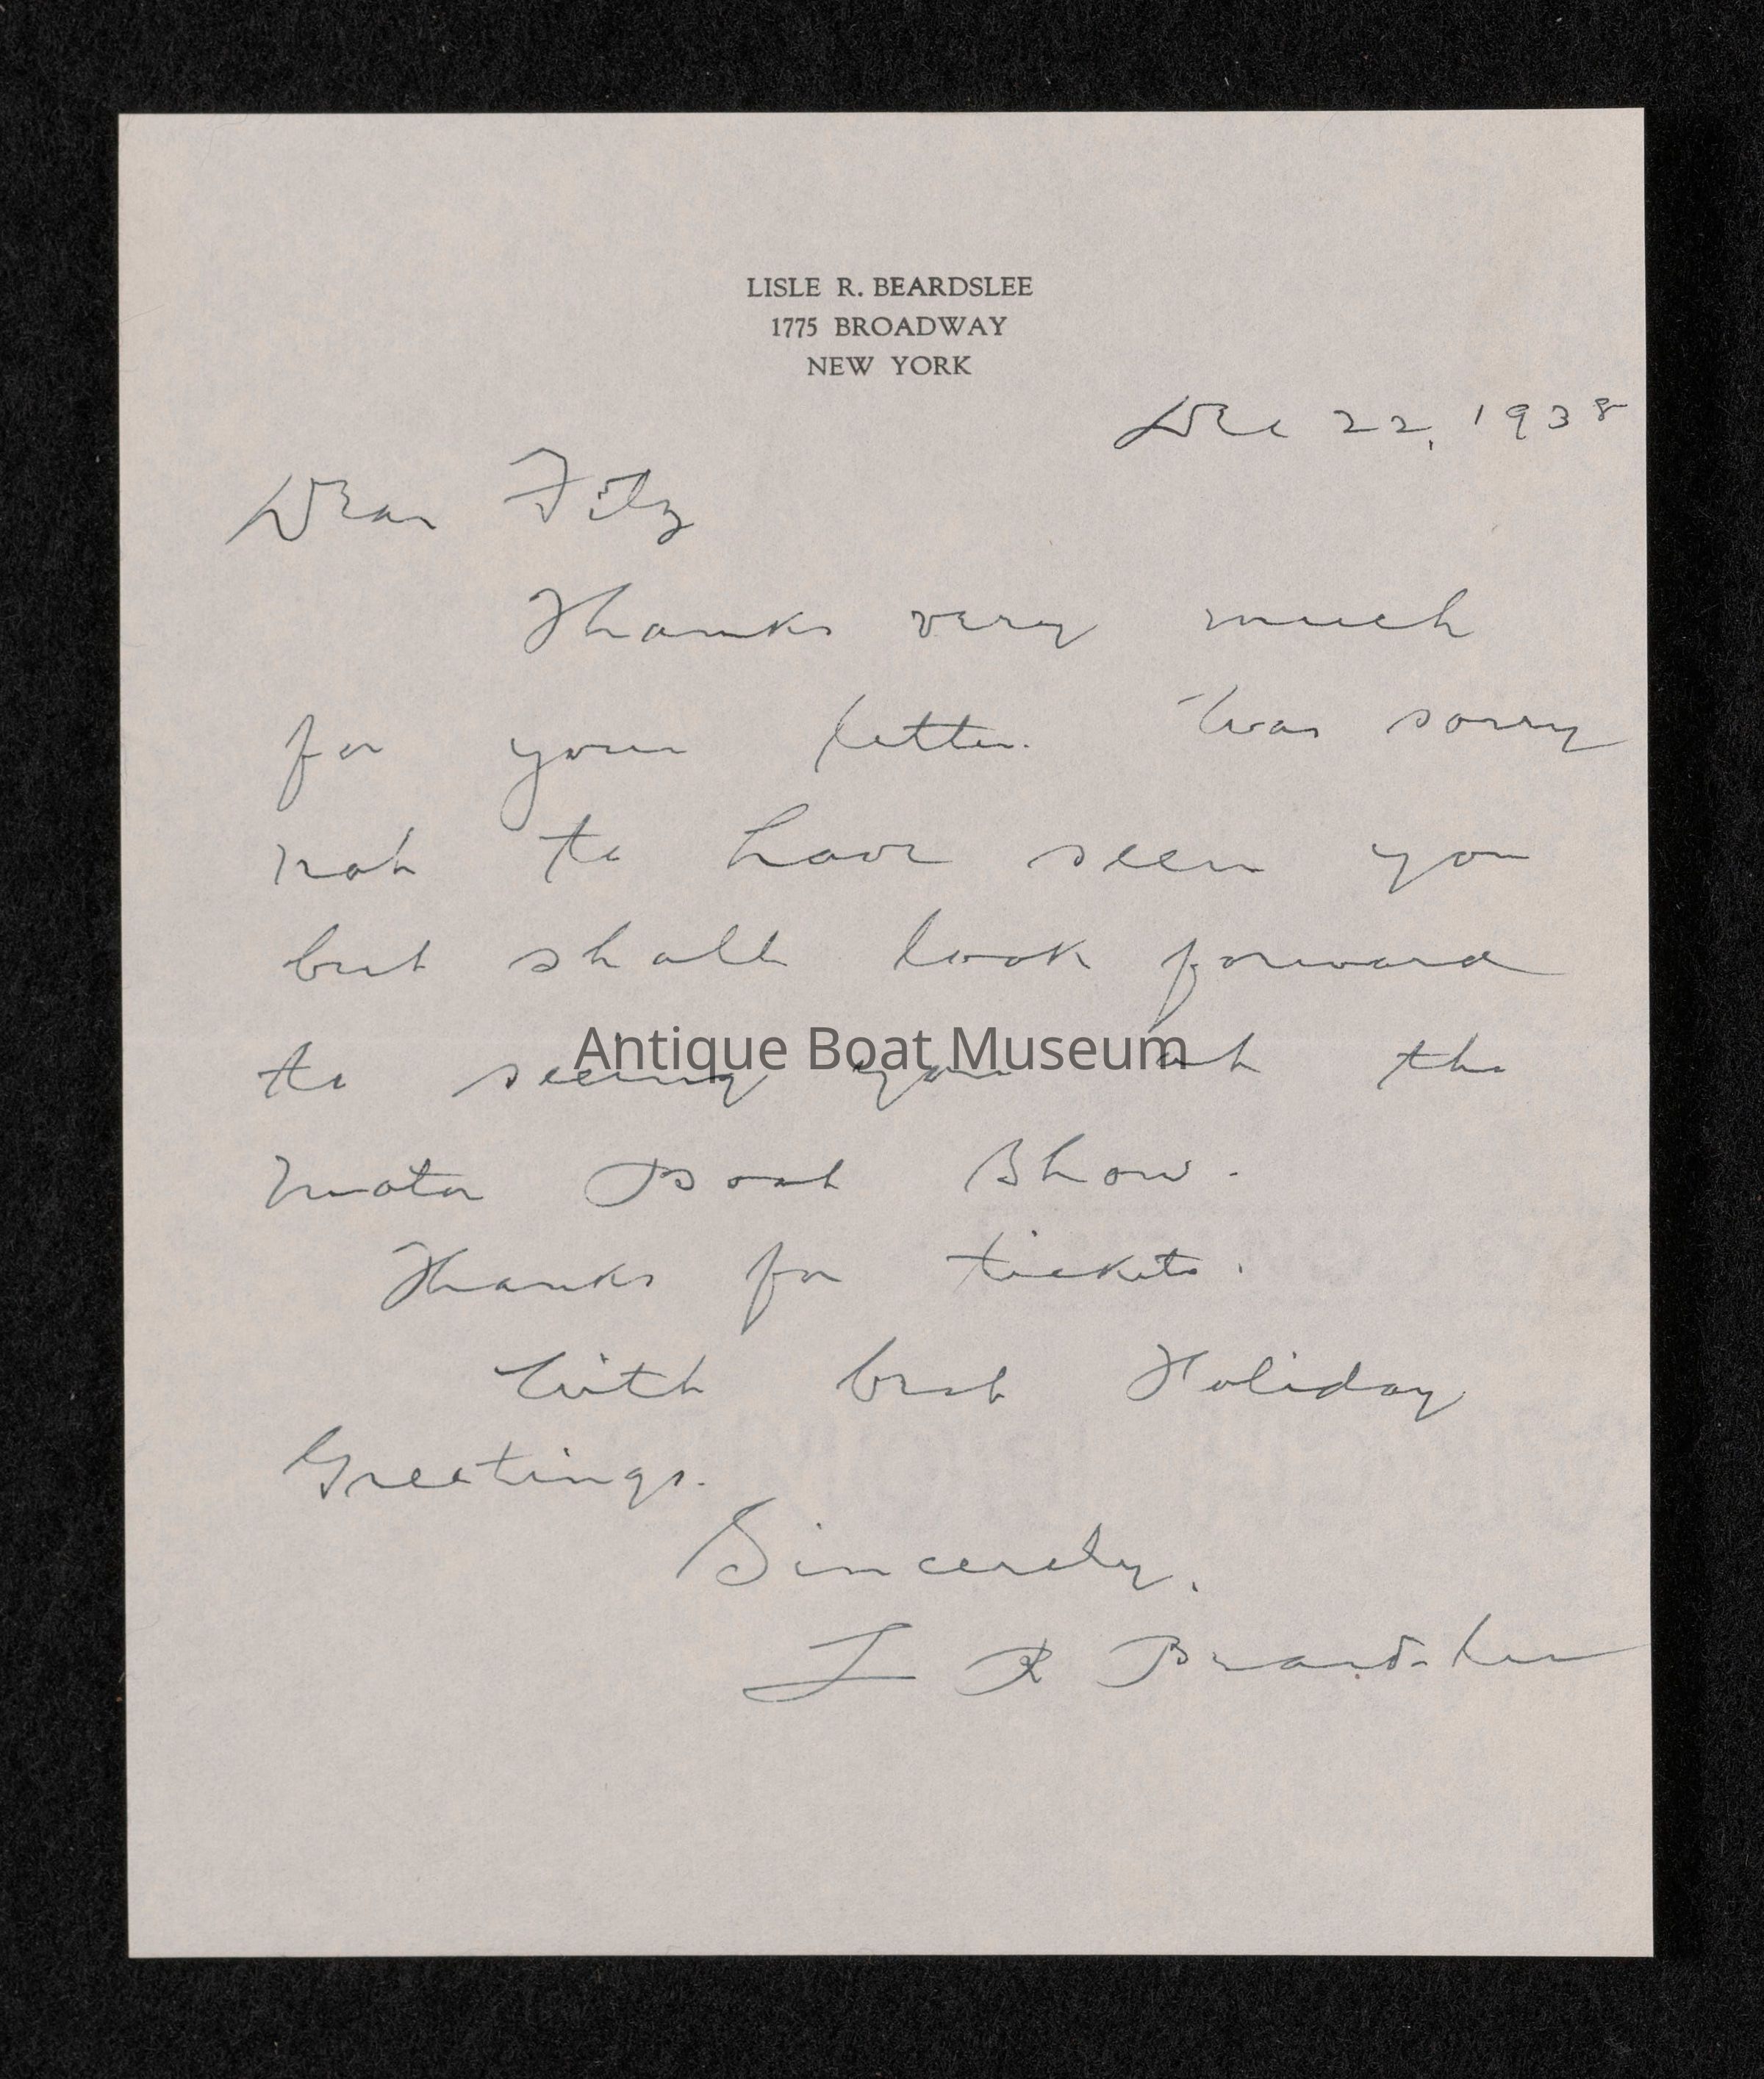 LISLE R. BEARDSLEE
1775 BROADWAY
NEW YORK
Dec 22, 1938
Dear Fitz
Thanks very much
for your letter. Was sorry
not to have seen you
but shall look forward
Antique Boat Museum
to seeing you at the
Motor Boat Show.
Thanks for tickets.
With best Holiday
Greetings.
Sincerely,
L R Beardslee